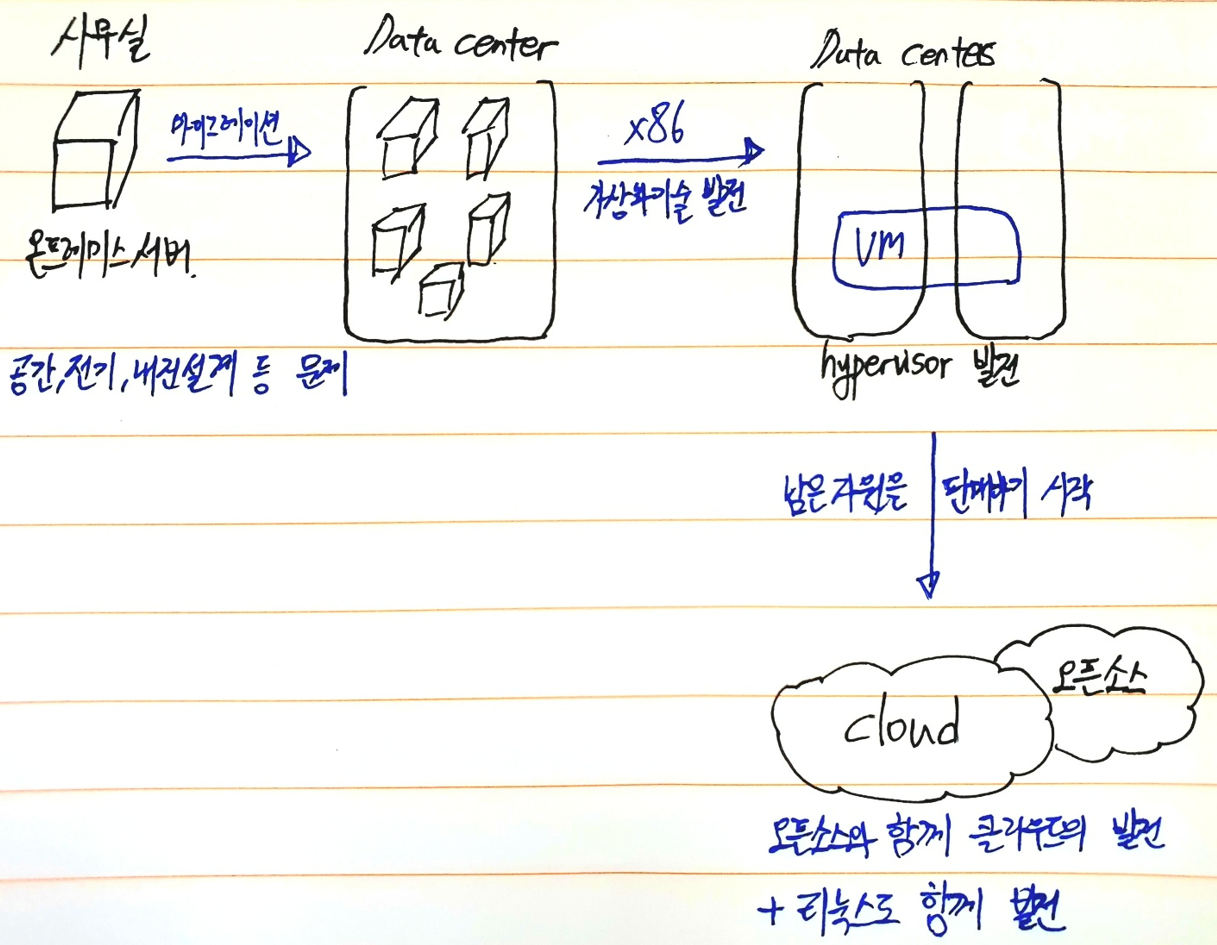 사무실
Data center
Data centers
마이그레이션
x86
가상화기술 발전
VM
온프레미스 서버.
공간, 전기, 내진설계 등 문제
hypervisor 발전
남은 자원을 판매하기 시작
오픈소스
cloud
오픈소스와 함께 클라우드의 발전
+ 리눅스도 함께 발전